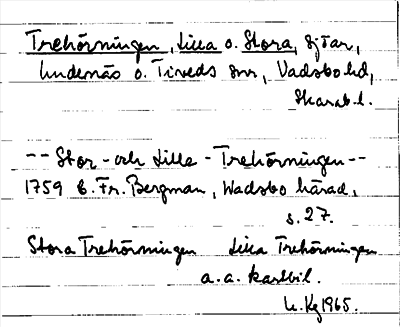 Trehörningen, Lilla o. Stora, sjöar,
Undenäs o. Tiveds snr, Vadsbo hd,
Skarab. l.
-- Stor- och Lilla - Trehörningen --
1759 C. Fr. Bergman, Wadsbo härad,
s. 27.
Stora Trehörningen Lilla Trehörningen
a. a. kartbil.
U. Kg 1965.